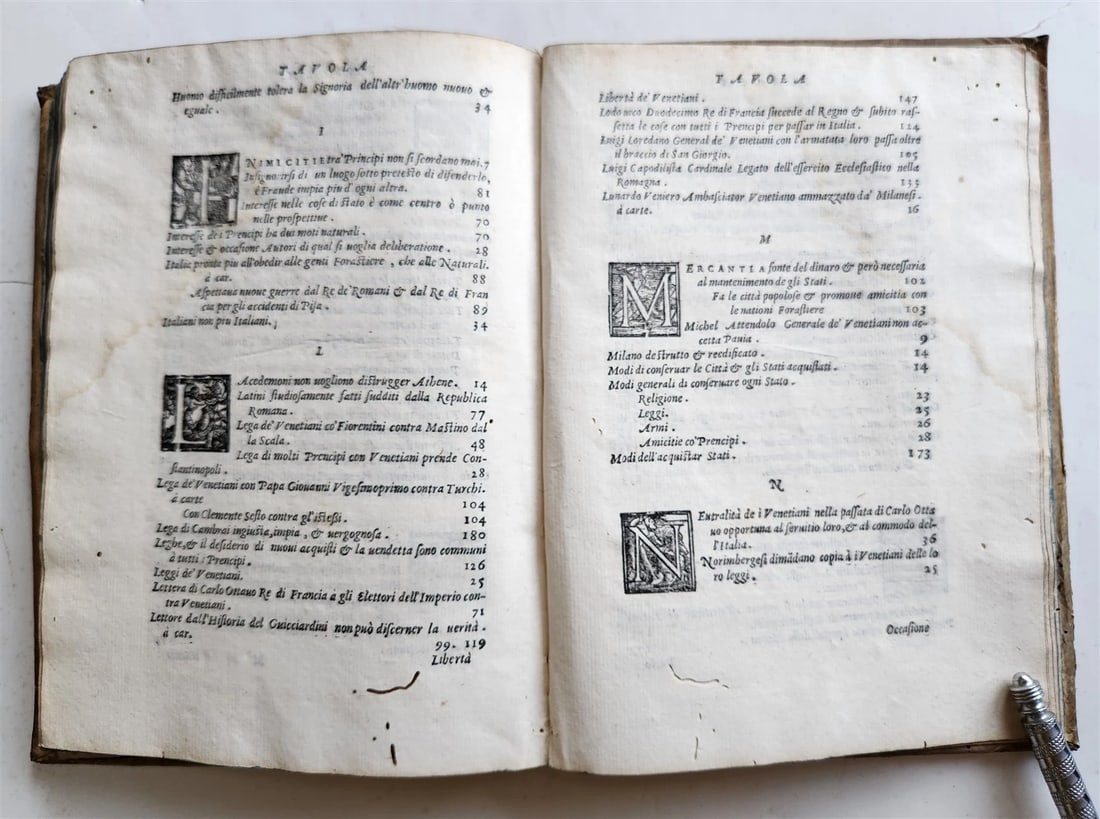 TAVOLA
Huomo difficilmente tolera la Signoria dell'altr'huomo nuouo &
eguale. 34
I
INIMICITIE tra' Principi non si scordano mai. 7
Insignorirsi di un luogo sotto pretesto di difenderlo,
è Fraude impia piu d'ogni altra. 81
Interesse nelle cose di stato è come centro ò punto
nelle prospettiue. 70
Interesse dei Prencipi ha dua moti naturali. 70
Interesse & occasione Autori di qual si uoglia deliberatione. 28
Italia pronta piu all'obedir alle genti Forastiere, che alle Naturali.
à car. 88
Aspettaua nuoue guerre dal Re de' Romani & dal Re di Fran
cia per gli accidenti di Pisa. 89
Italiani non piu Italiani. 34
L
LAcedemoni non uogliono distrugger Athene. 14
Latini studiosamente fatti sudditi dalla Republica
Romana. 77
Lega de' Venetiani co' Fiorentini contra Mastino dal
la Scala. 48
Lega di molti Prencipi con Venetiani prende Con-
stantinopoli. 28
Lega de' Venetiani con Papa Giouanni Vigesimoprimo contra Turchi.
à carte 104
Con Clemente Sesto contra gl'istessi. 104
Lega di Cambrai ingiusta, impia, & uergognosa. 180
Leghe, & il desiderio di nuoui acquisti & la uendetta sono communi
à tutti i Prencipi. 126
Leggi de' Venetiani. 25
Lettera di Carlo Ottauo Re di Francia a gli Elettori dell'Imperio con-
tra Venetiani. 71
Lettore dall'Historia del Guicciardini non può discerner la uerità.
à car. 99. 119
Libertà
TAVOLA
Libertà de' Venetiani. 147
Lodouico Duodecimo Re di Francia succede al Regno & subito ras-
setta le cose con tutti i Prencipi per passar in Italia. 124
Luigi Loredano General de' Venetiani con l'armatata loro passa oltre
il braccio di San Giorgio. 105
Luigi Capodilista Cardinale Legato dell'essercito Ecclesiastico nella
Romagna. 133
Lunardo Veniero Ambasciator Venetiano ammazzato da' Milanesi.
à carte. 16
M
MERCANTIA fonte del dinaro & però necessaria
al mantenimento de gli Stati. 102
Fa le città popolose & promoue amicitia con
le nationi Forastiere 103
Michel Attendolo Generale de' Venetiani non ac-
cetta Pauia. 9
Milano destrutto & reedificato. 14
Modi di conseruar le Città & gli Stati acquistati. 14
Modi generali di conseruare ogni Stato.
Religione. 23
Leggi. 25
Armi. 26
Amicitie co' Prencipi. 28
Modi dell'acquistar Stati. 173
N
NEutralità de i Venetiani nella passata di Carlo Otta
uo opportuna al seruitio loro, & al commodo del-
l'Italia. 36
Norimbergesi dimādano copia à i Venetiani delle lo
ro leggi. 25
Occasione